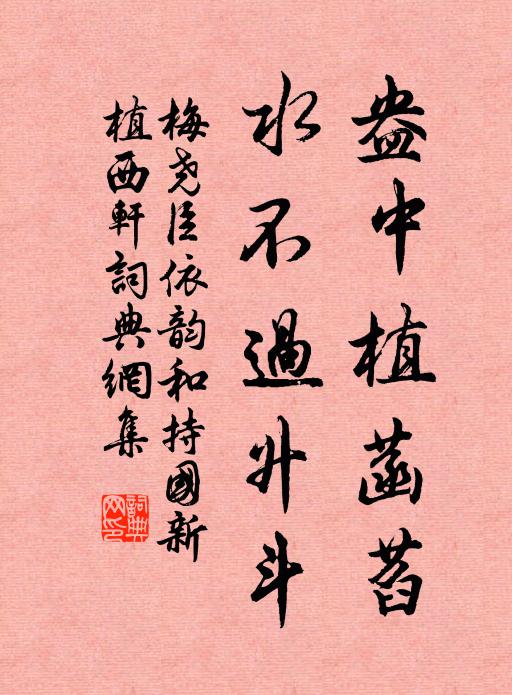 盎中植菡萏
水不過升斗
梅堯臣依韵和持國新
植西軒詞典網集
詞典網印